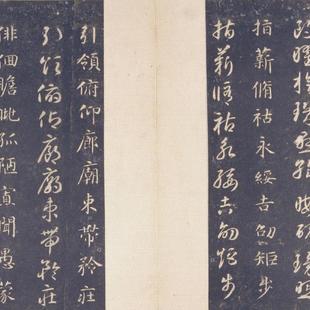 朗曜璇璣懸斡晦魄環照
指薪脩祜永綏吉劭矩步
指薪脩祜永綏吉劭矩步
引領俯仰廊廟束帶矜莊
引領俯仰廊廟束帶矜莊
俳佪瞻眺孤陋寡聞愚蒙